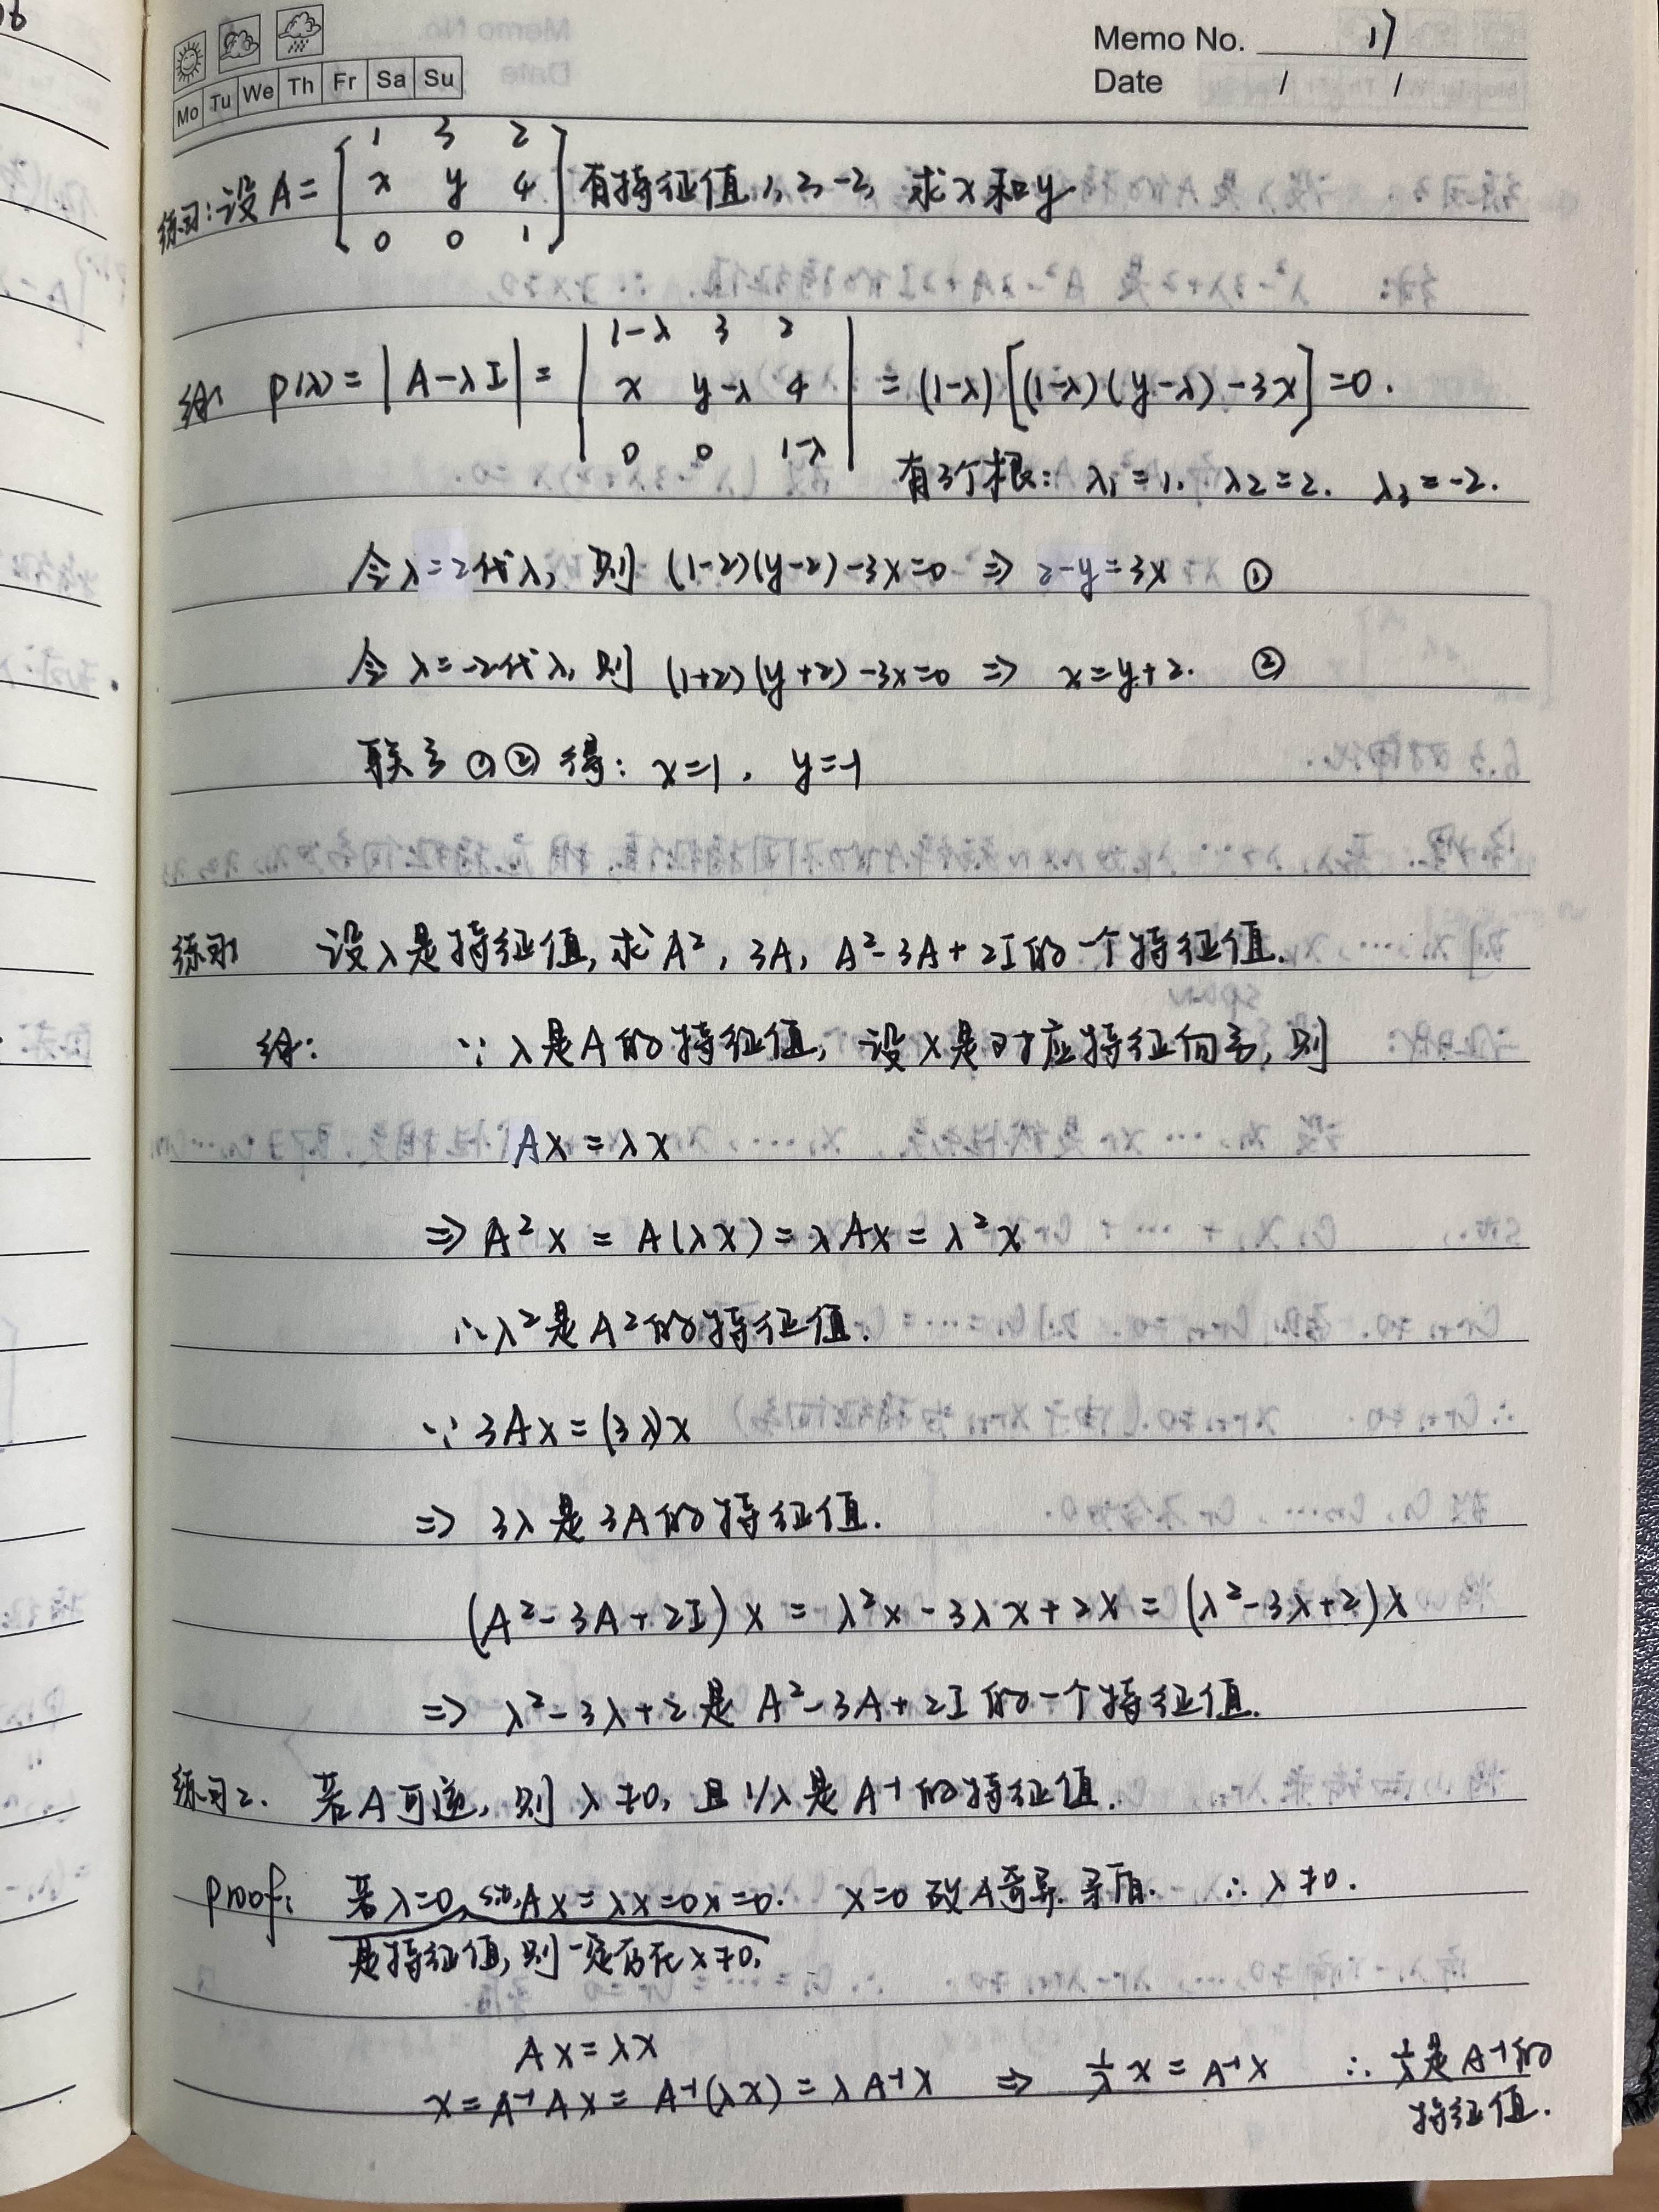 Memo No. 17
Mo Tu We Th Fr Sa Su
Date / /
练习:设A= [ 1 3 2 ; x y 4 ; 0 0 1 ] 有特征值1,2,-2, 求x和y
解: p(λ) = |A-λI| = | 1-λ 3 2 ; x y-λ 4 ; 0 0 1-λ | = (1-λ)[(1-λ)(y-λ)-3x]=0.
有3个根: λ₁=1. λ₂=2. λ₃=-2.
令λ=2代λ, 则 (1-2)(y-2)-3x=0 ⇒ 2-y=3x ①
令λ=-2代λ, 则 (1+2)(y+2)-3x=0 ⇒ x=y+2. ②
联立①②得: x=1, y=-1
练习1 设λ是特征值, 求A², 3A, A²-3A+2I的一个特征值.
解: ∵λ是A的特征值, 设x是对应特征向量, 则
Ax=λx
⇒ A²x = A(λx) = λAx = λ²x
∴λ²是A²的特征值.
∵3Ax=(3λ)x
⇒ 3λ是3A的特征值.
(A²-3A+2I)x = λ²x-3λx+2x = (λ²-3λ+2)x
⇒ λ²-3λ+2是A²-3A+2I的一个特征值.
练习2. 若A可逆, 则λ≠0, 且1/λ是A⁻¹的特征值.
proof: 若λ=0, s.t. Ax=λx=0x=0. x=0 故A奇异. 矛盾. ∴λ≠0.
是特征值, 则一定存在x≠0,
Ax=λx
x=A⁻¹Ax=A⁻¹(λx)=λA⁻¹x ⇒ 1/λ x = A⁻¹x ∴ 1/λ是A⁻¹的
特征值.